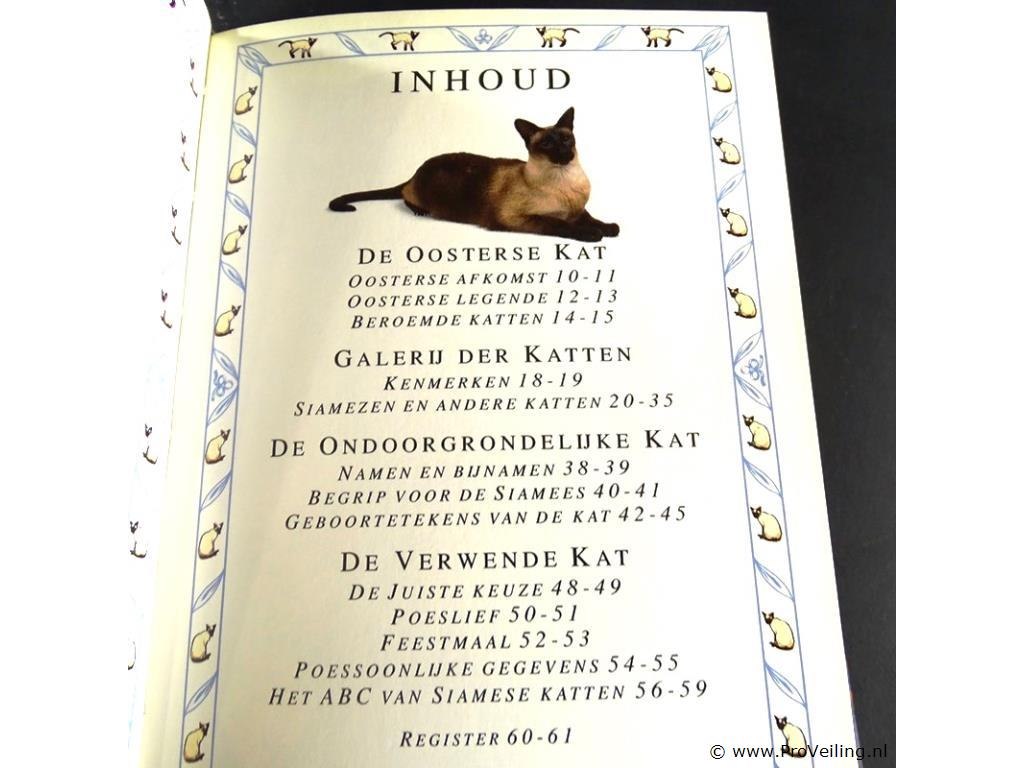 INHOUD
DE OOSTERSE KAT
OOSTERSE AFKOMST 10-11
OOSTERSE LEGENDE 12-13
BEROEMDE KATTEN 14-15
GALERIJ DER KATTEN
KENMERKEN 18-19
SIAMEZEN EN ANDERE KATTEN 20-35
DE ONDOORGRONDELIJKE KAT
NAMEN EN BIJNAMEN 38-39
BEGRIP VOOR DE SIAMEES 40-41
GEBOORTETEKENS VAN DE KAT 42-45
DE VERWENDE KAT
DE JUISTE KEUZE 48-49
POESLIEF 50-51
FEESTMAAL 52-53
POESSOONLIJKE GEGEVENS 54-55
HET ABC VAN SIAMESE KATTEN 56-59
REGISTER 60-61
© www.ProVeiling.nl